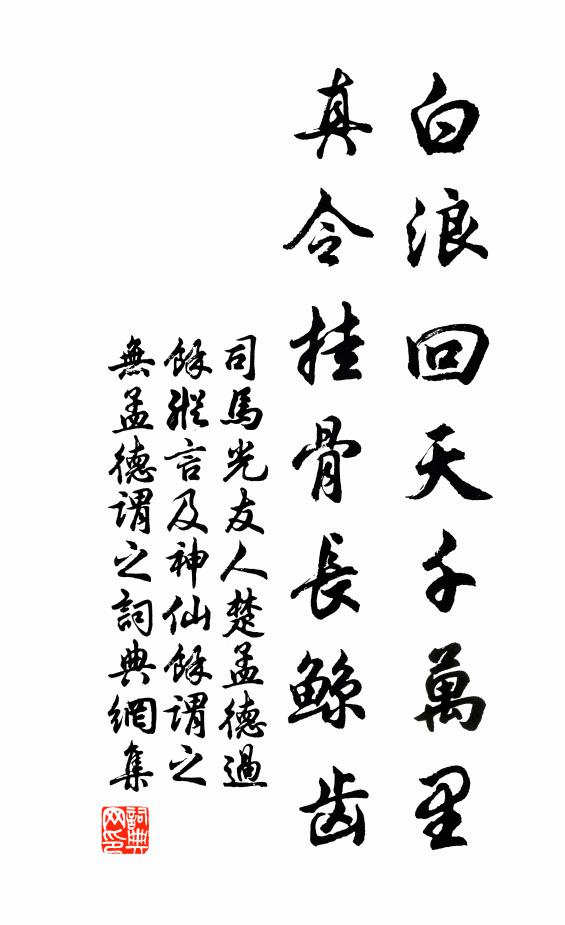 白浪回天千萬里
真令挂骨長鯨齿
司馬光友人楚孟德過
餘縱言及神仙餘謂之
無孟德謂之詞典網集
詞典网印